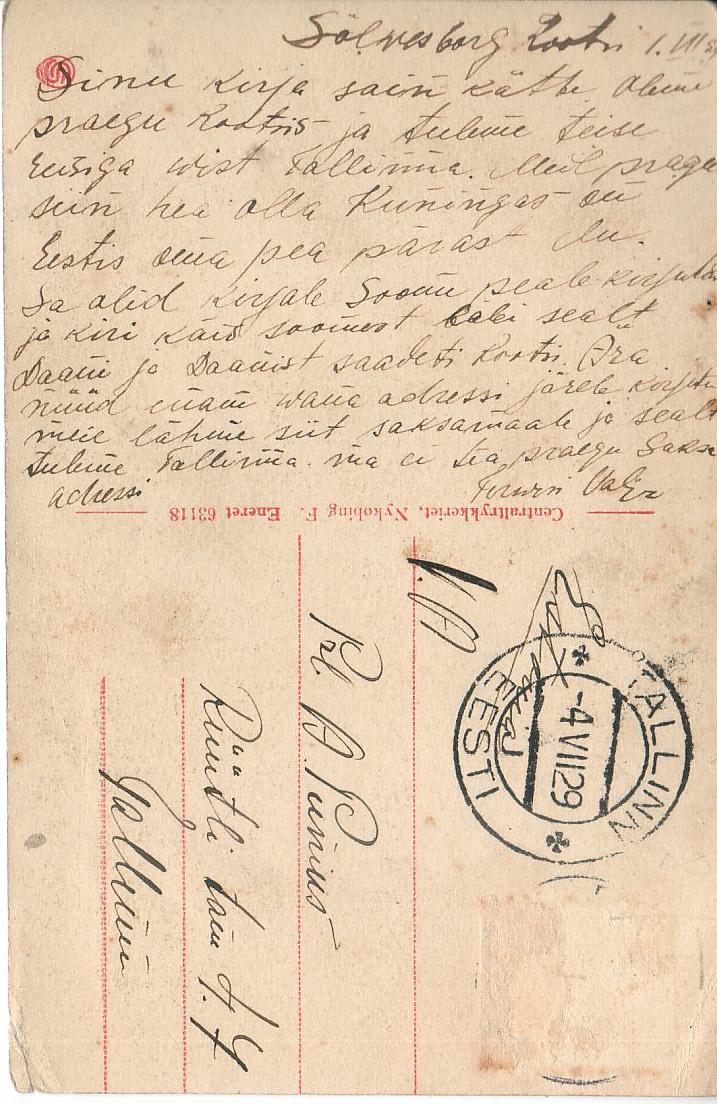 Sölvesborg Rootsi 1. VII 29
Sinu kirja sain kätte Oleme
praegu Rootsis ja tuleme teise
reisiga wist Tallinna. Meil praegu
siin hea olla Kuningas on
Eestis oma pea pärast
Sa olid kirjale Soome peale kirjutan
ja kiri käis soomest läbi sealt
Daani ja Daanist saadeti Rootsi. Ära
nüüd enam wana adressi järele kirjuta
meie lähme siit saksamaale ja sealt
tuleme Tallinna. ma ei tea praegu Saksa
adressi
Centraltrykkeriet, Nykobing F. Eneret 63118
Prl. A. Punius
Rüütli tän 4.
Tallinn
TALLINN
-4 VII 29
EESTI